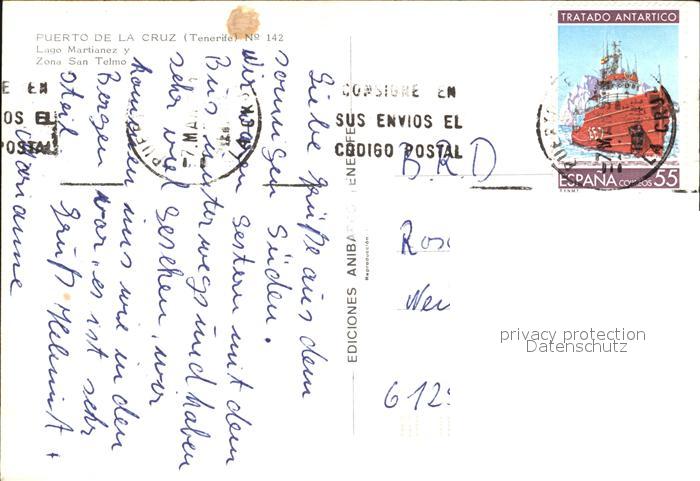 PUERTO DE LA CRUZ (Tenerife) Nº 142
Lago Martianez y
Zona San Telmo
Liebe Grüße aus dem
sonnigen Süden.
Wir waren gestern mit dem
Bus unterwegs und haben
sehr viel gesehen, wir
kommen uns wie in den
Bergen vor, es ist sehr
steil. Gruß Helmut +
Marianne
EDICIONES ANIBA
TENERIFE
Reproducción
CONSIGNE EN
SUS ENVIOS EL
CODIGO POSTAL
E EN
OS EL
POSTAL
TRATADO ANTARTICO
ESPAÑA CORREOS 55
B.R.D
Ros
Neu
612
privacy protection
Datenschutz